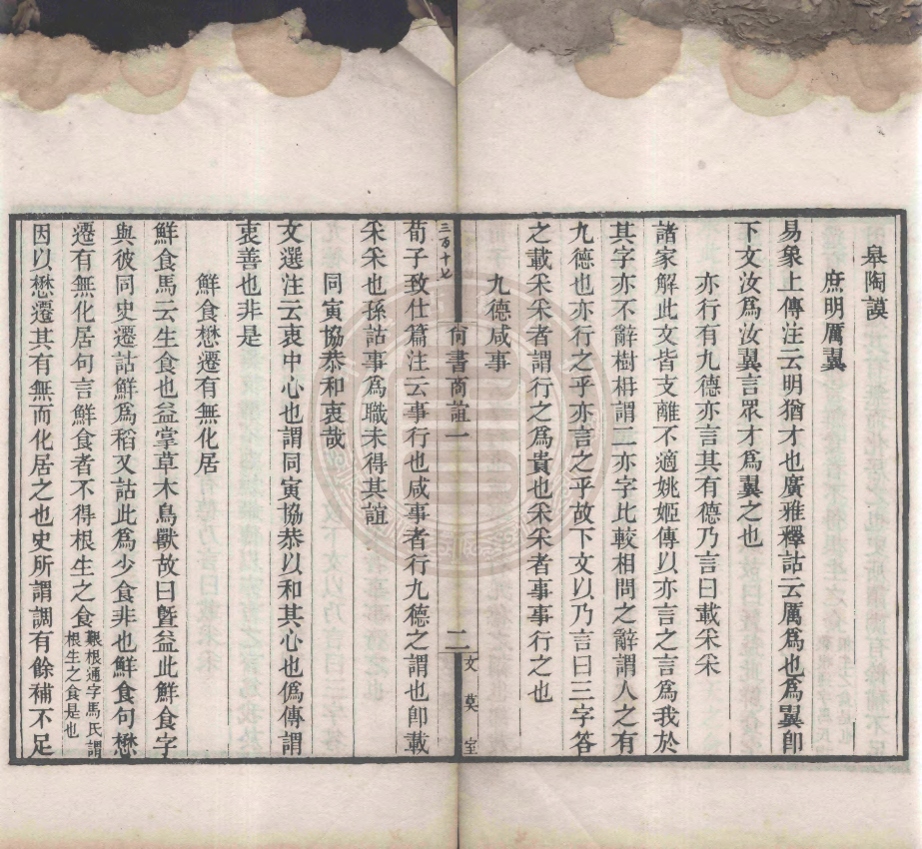 皋陶謨
庶明厲翼
易象上傳注云明猶才也廣雅釋詁云厲爲也爲翼卽
下文汝爲汝翼言眾才爲翼之也
亦行有九德亦言其有德乃言曰載采采
諸家解此文皆支離不適姚姬傳以亦言之言爲我於
其字亦不辭樹枏謂二亦字比較相問之辭謂人之有
九德也亦行之乎亦言之乎故下文以乃言曰三字答
之載采采者謂行之爲貴也采采者事事行之也
九德咸事
三百十七
尙書商誼一
二
文莫室
荀子致仕篇注云事行也咸事者行九德之謂也卽載
采采也孫詁事爲職未得其誼
同寅協恭和衷哉
文選注云衷中心也謂同寅協恭以和其心也僞傳謂
衷善也非是
鮮食懋遷有無化居
鮮食馬云生食也益掌草木鳥獸故曰暨益此鮮食字
與彼同史遷詁鮮爲稻又詁此爲少食非也鮮食句懋
遷有無化居句言鮮食者不得根生之食艱根通字馬氏謂根生之食是也
因以懋遷其有無而化居之也史所謂調有餘補不足